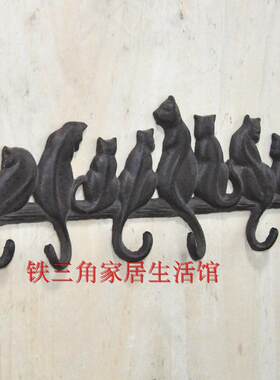 铁三角家居生活馆